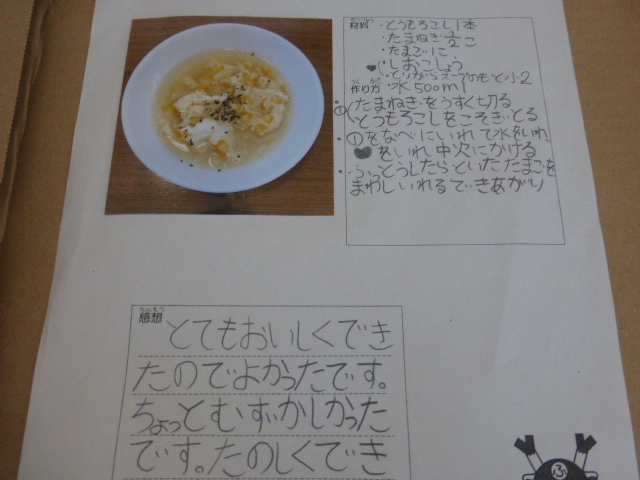 材料
ざいりょう
・とうもろこし1本
・たまねぎ1/2こ
・たまご1こ
♥しおこしょう
とりがらスープのもと小2
作り方
つく かた
・水500ml
①たまねぎをうすく切る
とうもろこしをこそぎとる
・①をなべにいれて水をいれ、
♥をいれ中火にかける
・ふっとうしたらといたたまごを
まわしいれるできあがり
感想
かんそう
とてもおいしくでき
たのでよかったです。
ちょっとむずかしかった
です。たのしくでき
ふ